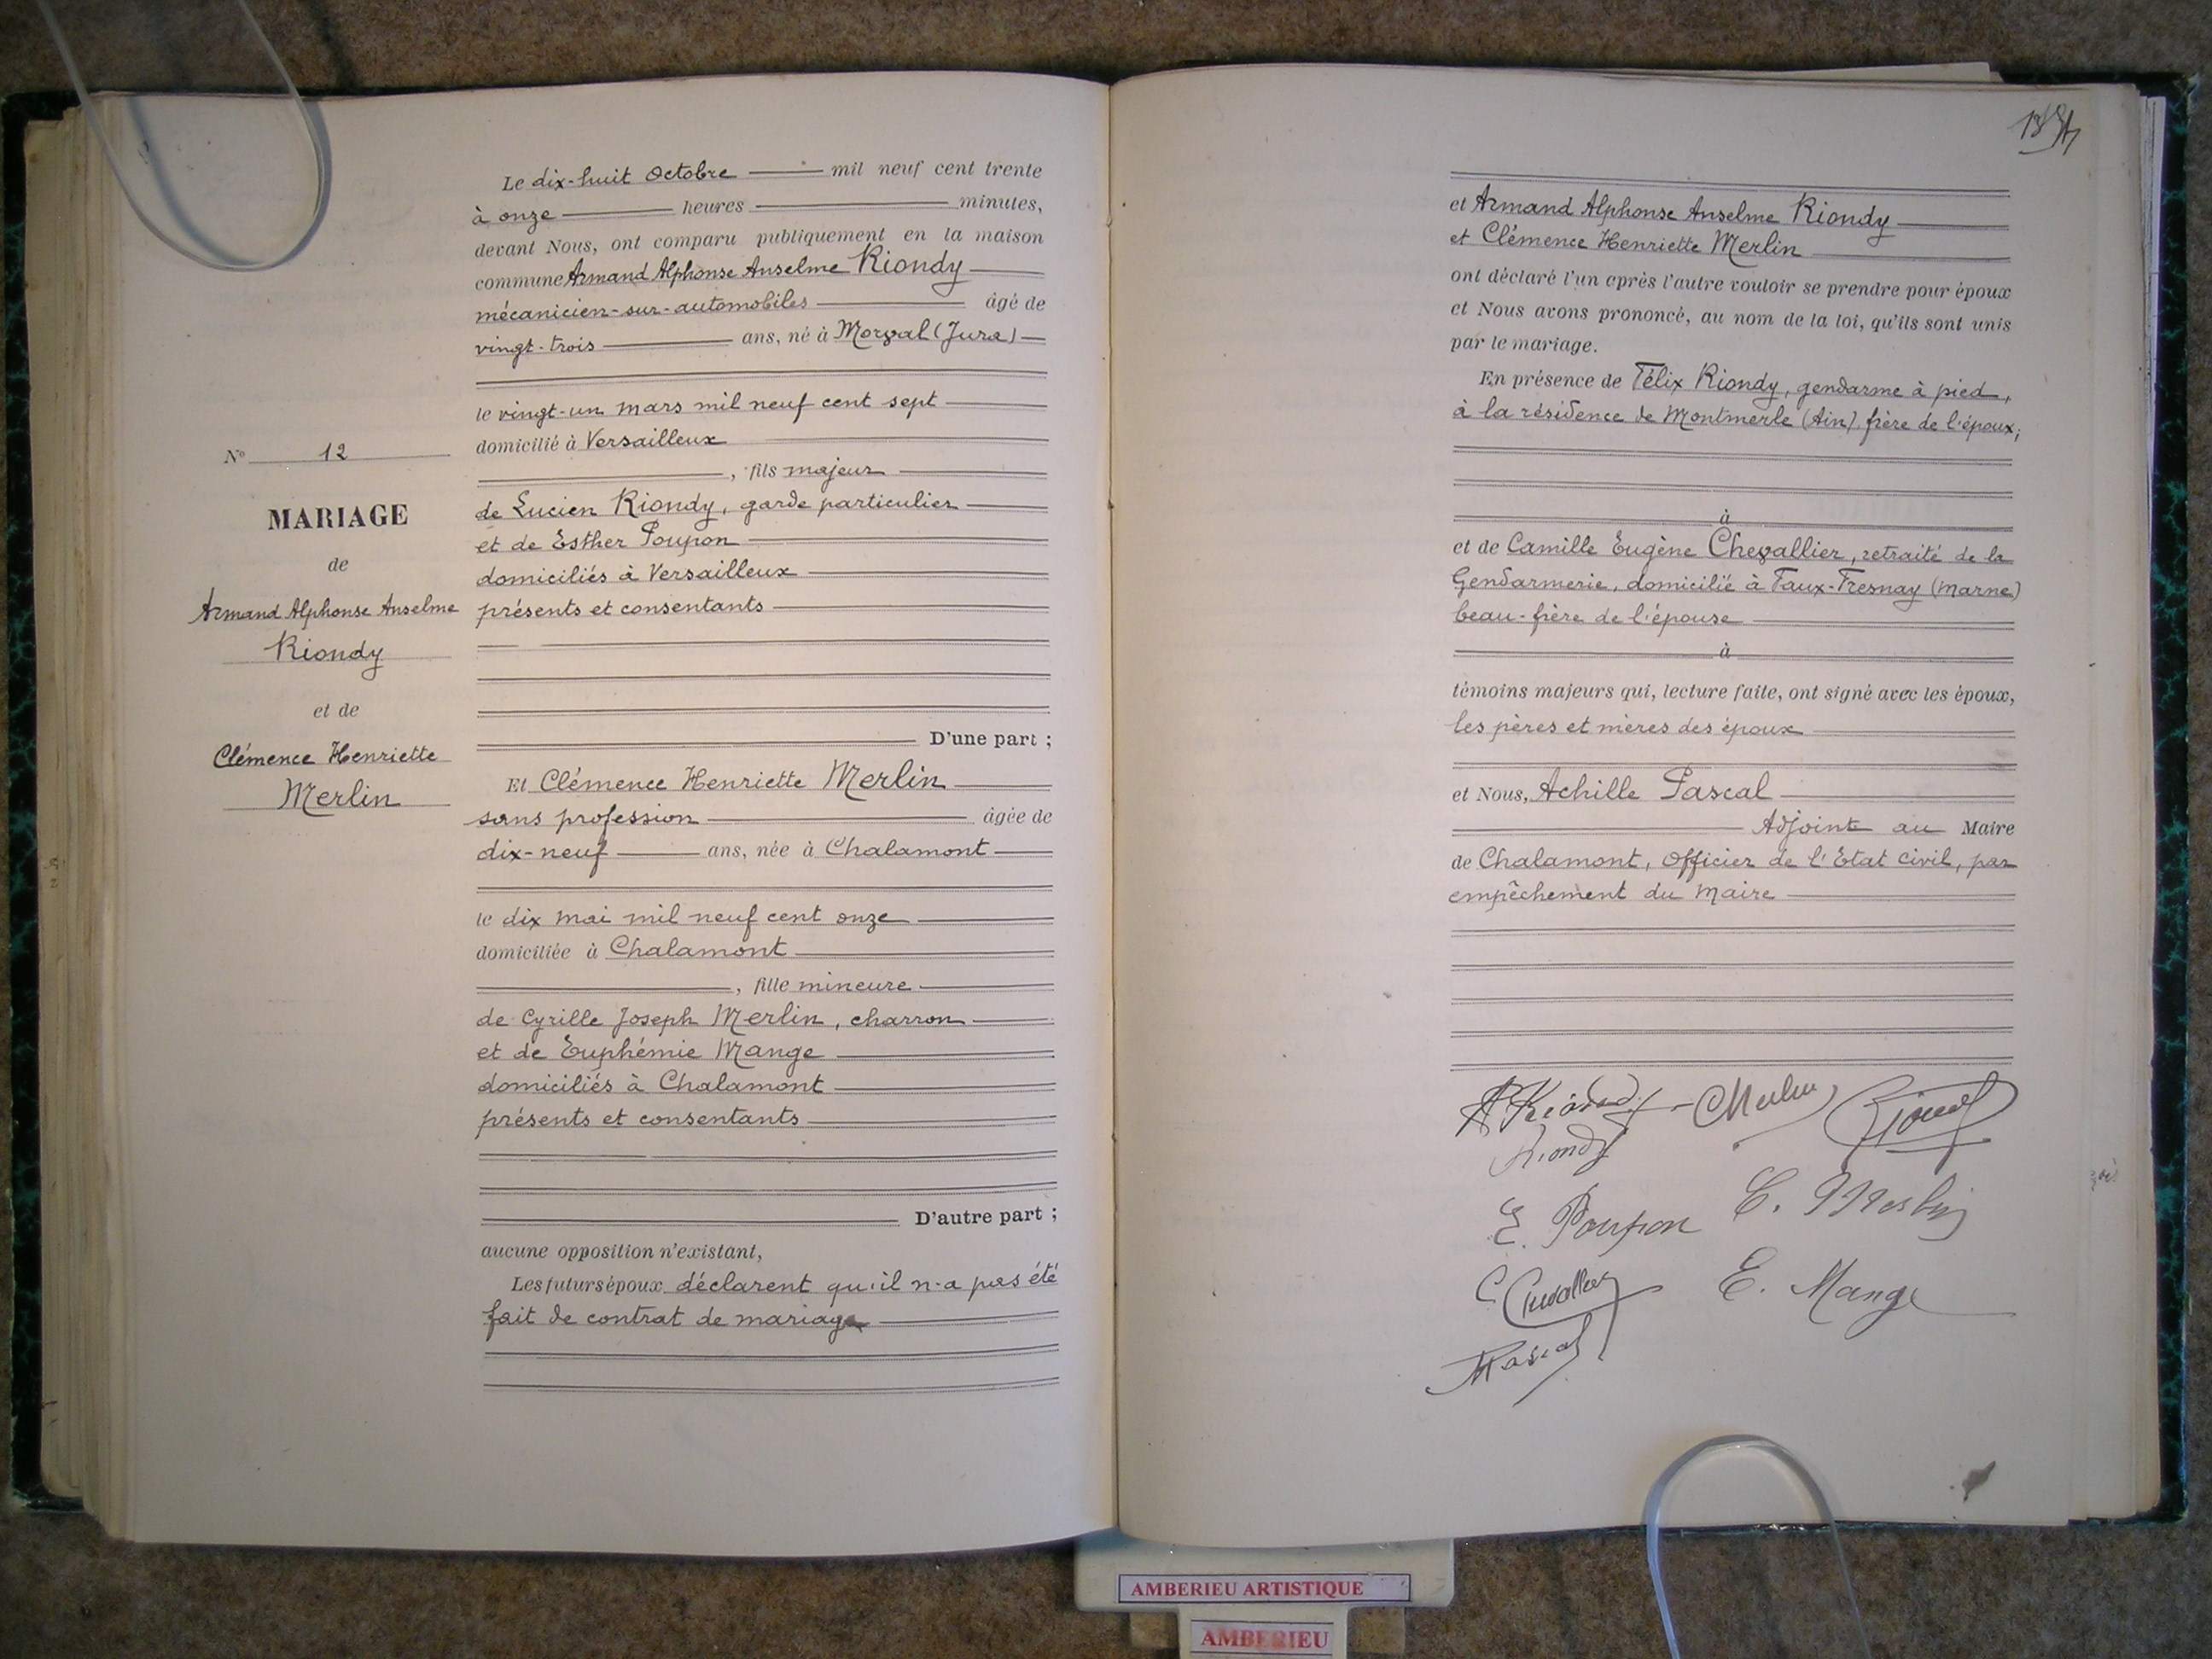 Le dix-huit Octobre mil neuf cent trente
à onze heures minutes,
devant Nous, ont comparu publiquement en la maison
commune Armand Alphonse Anselme Riondy
mécanicien-sur-automobiles âgé de
vingt-trois ans, né à Morval (Jura)
le vingt-un mars mil neuf cent sept
domicilié à Versailleux
, fils majeur
de Lucien Riondy, garde particulier
et de Esther Poupon
domiciliés à Versailleux
présents et consentants
D'une part ;
Et Clémence Henriette Merlin
sans profession âgée de
dix-neuf ans, née à Chalamont
le dix mai mil neuf cent onze
domiciliée à Chalamont
, fille mineure
de Cyrille Joseph Merlin, charron
et de Euphémie Mange
domiciliés à Chalamont
présents et consentants
D'autre part ;
aucune opposition n'existant,
Les futurs époux déclarent qu'il n'a pas été
fait de contrat de mariage
N° 12
MARIAGE
de
Armand Alphonse Anselme
Riondy
et de
Clémence Henriette
Merlin
et Armand Alphonse Anselme Riondy
et Clémence Henriette Merlin
ont déclaré l'un après l'autre vouloir se prendre pour époux
et Nous avons prononcé, au nom de la loi, qu'ils sont unis
par le mariage.
En présence de Félix Riondy, gendarme à pied,
à la résidence de Montmerle (Ain) frère de l'époux;
à
et de Camille Eugène Chevallier, retraité de la
Gendarmerie, domicilié à Faux-Fresnay (Marne)
beau-frère de l'épouse
à
témoins majeurs qui, lecture faite, ont signé avec les époux,
les pères et mères des époux
et Nous, Achille Pascal
Adjoint au Maire
de Chalamont, Officier de l'Etat civil, par
empêchement du Maire
A Riondy C Merlin
Riondy
E. Poupon C. Merlin
C Chevallier E. Mange
APascal
AMBERIEU ARTISTIQUE
AMBERIEU